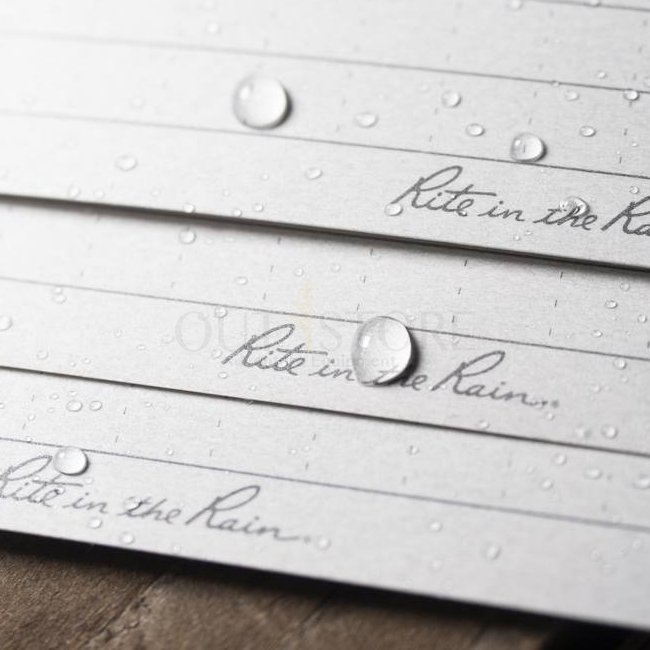 Rite in the Ra
Rite in the Rain...
Rite in the Rain...